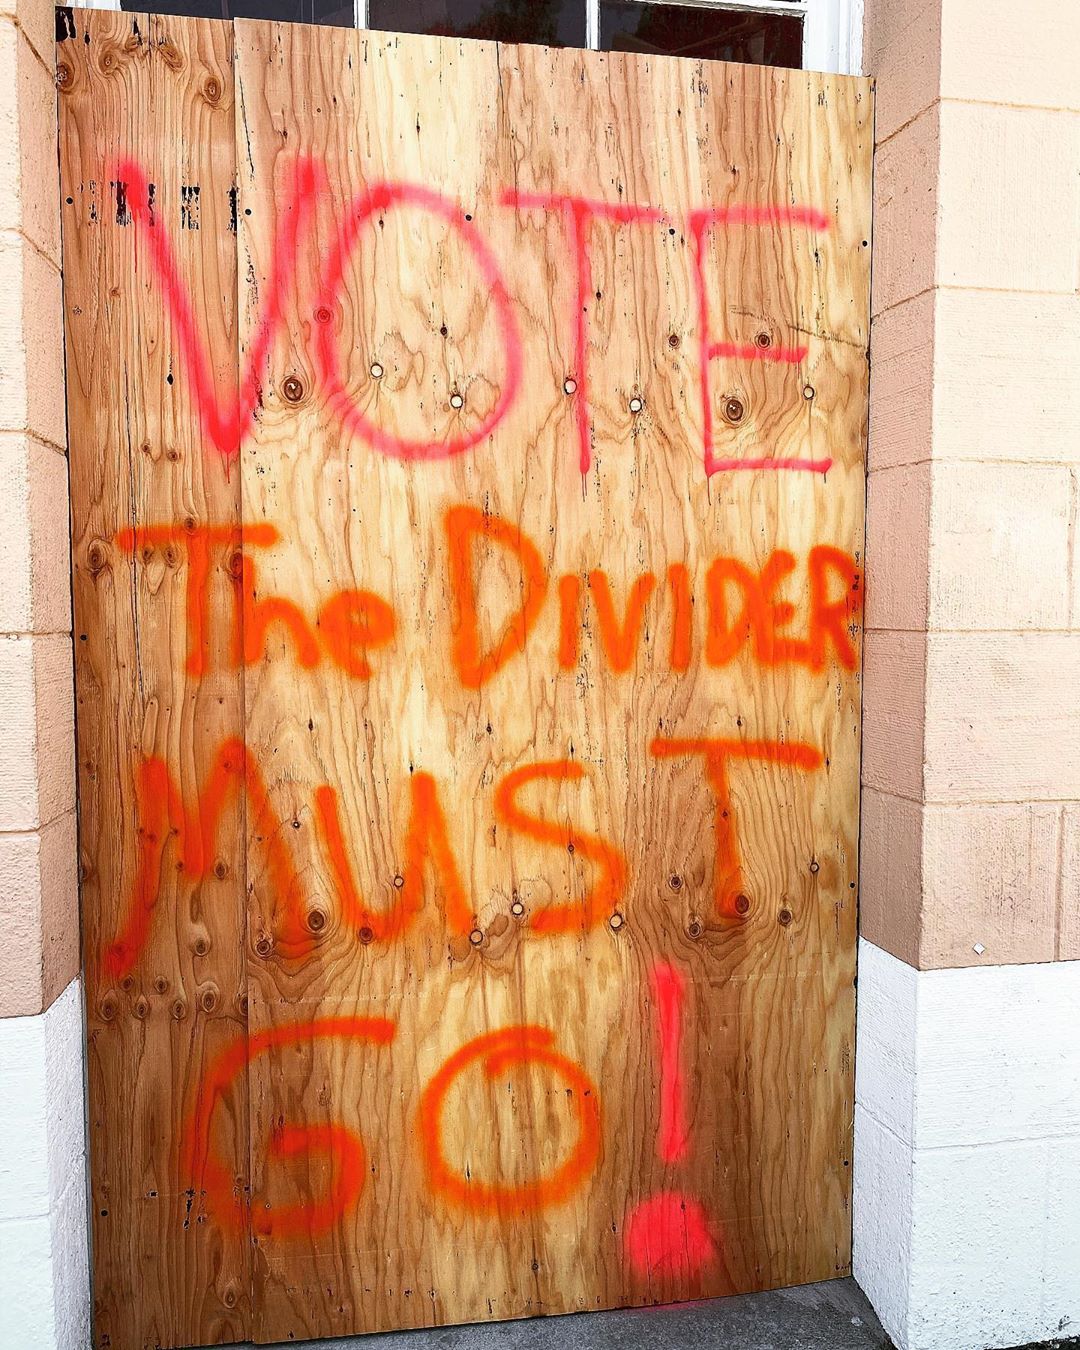 VOTE
The DIVIDER
MUST
GO!